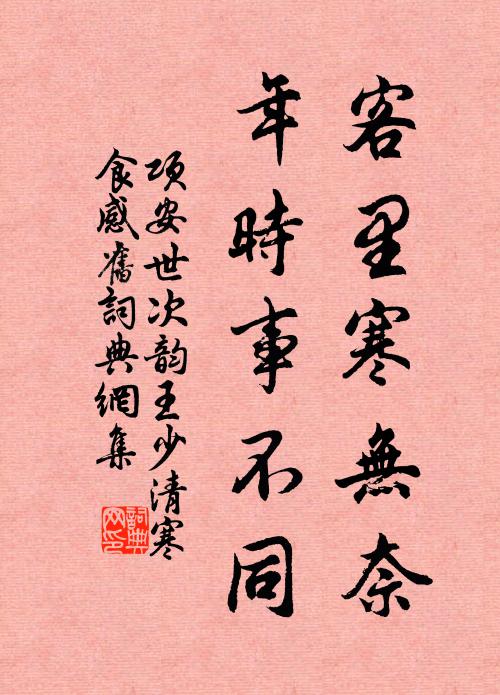 客里寒無奈
年時事不同
項安世次韵王少清寒
食感舊詞典網集
詞典
网印